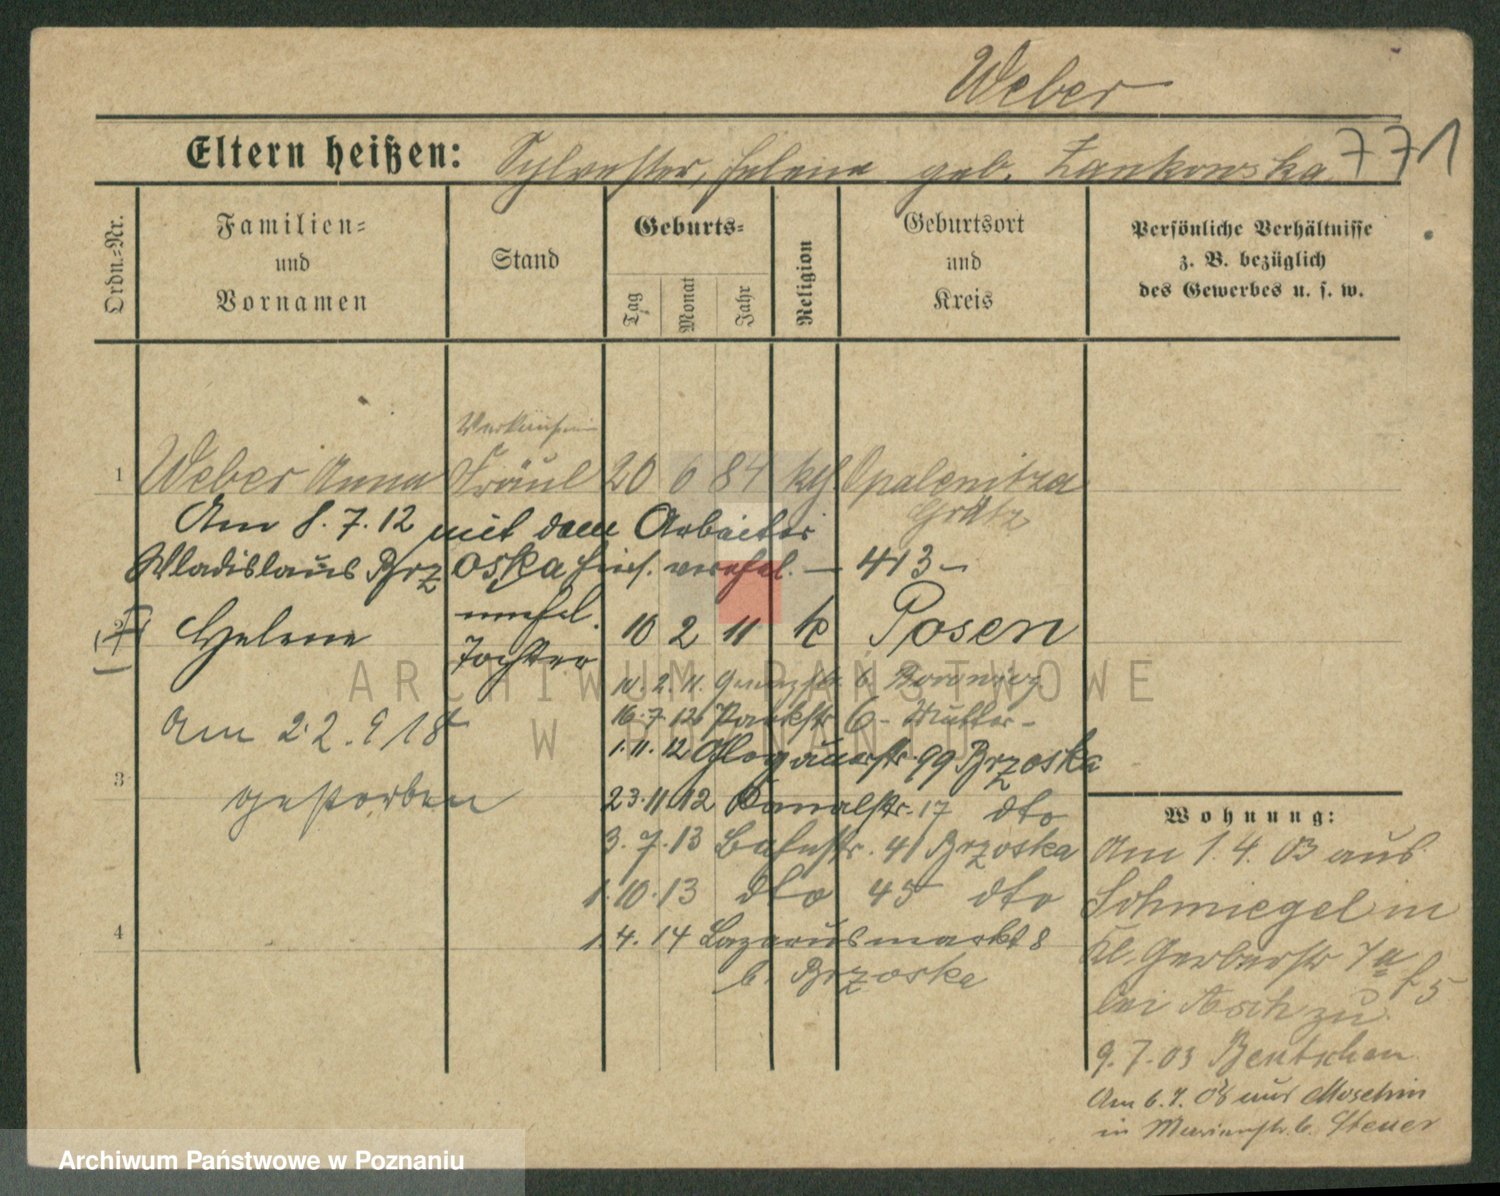 Weber
Eltern heißen: Sylvester, Helene geb. Zankowska 771
Ordn.-Nr.
Familien-
und
Vornamen
Stand
Geburts-
Tag
Monat
Jahr
Religion
Geburtsort
und
Kreis
Persönliche Verhältnisse
z. B. bezüglich
des Gewerbes u. s. w.
Verkäuferin
1 Weber Anna Fräul 20 6 84 kth. Opalenitza
Grätz
Am 8. 7. 12 mit dem Arbeiter
Wladislaus Brzoska hier. verehel. — 413 —
2 Helene unehel. 10 2 11 k Posen
Tochter
10. 2. 11. b.
16. 7. 12 Parkstr 6 - Mutter -
1. 11. 12 Glogauerstr. 99 Brzoska
Am 22. 9 18
gestorben
3
23. 11. 12 Kanalstr. 17 dto
3. 7. 13 Bahnstr. 41 Brzoska
1. 10. 13 dto 45 dto
4
1. 4. 14 Lazarusmarkt 8
b. Brzoska
Wohnung:
Am 1. 4. 03 aus
Schmiegel in
Kl. Gerberstr 7a
bei Asch zu
9. 7. 03 Bentschen
Am 6. 7. 08 aus Moschin
in b. Steuer
ARCHIWUM PAŃSTWOWE
W POZNANIU
Archiwum Państwowe w Poznaniu